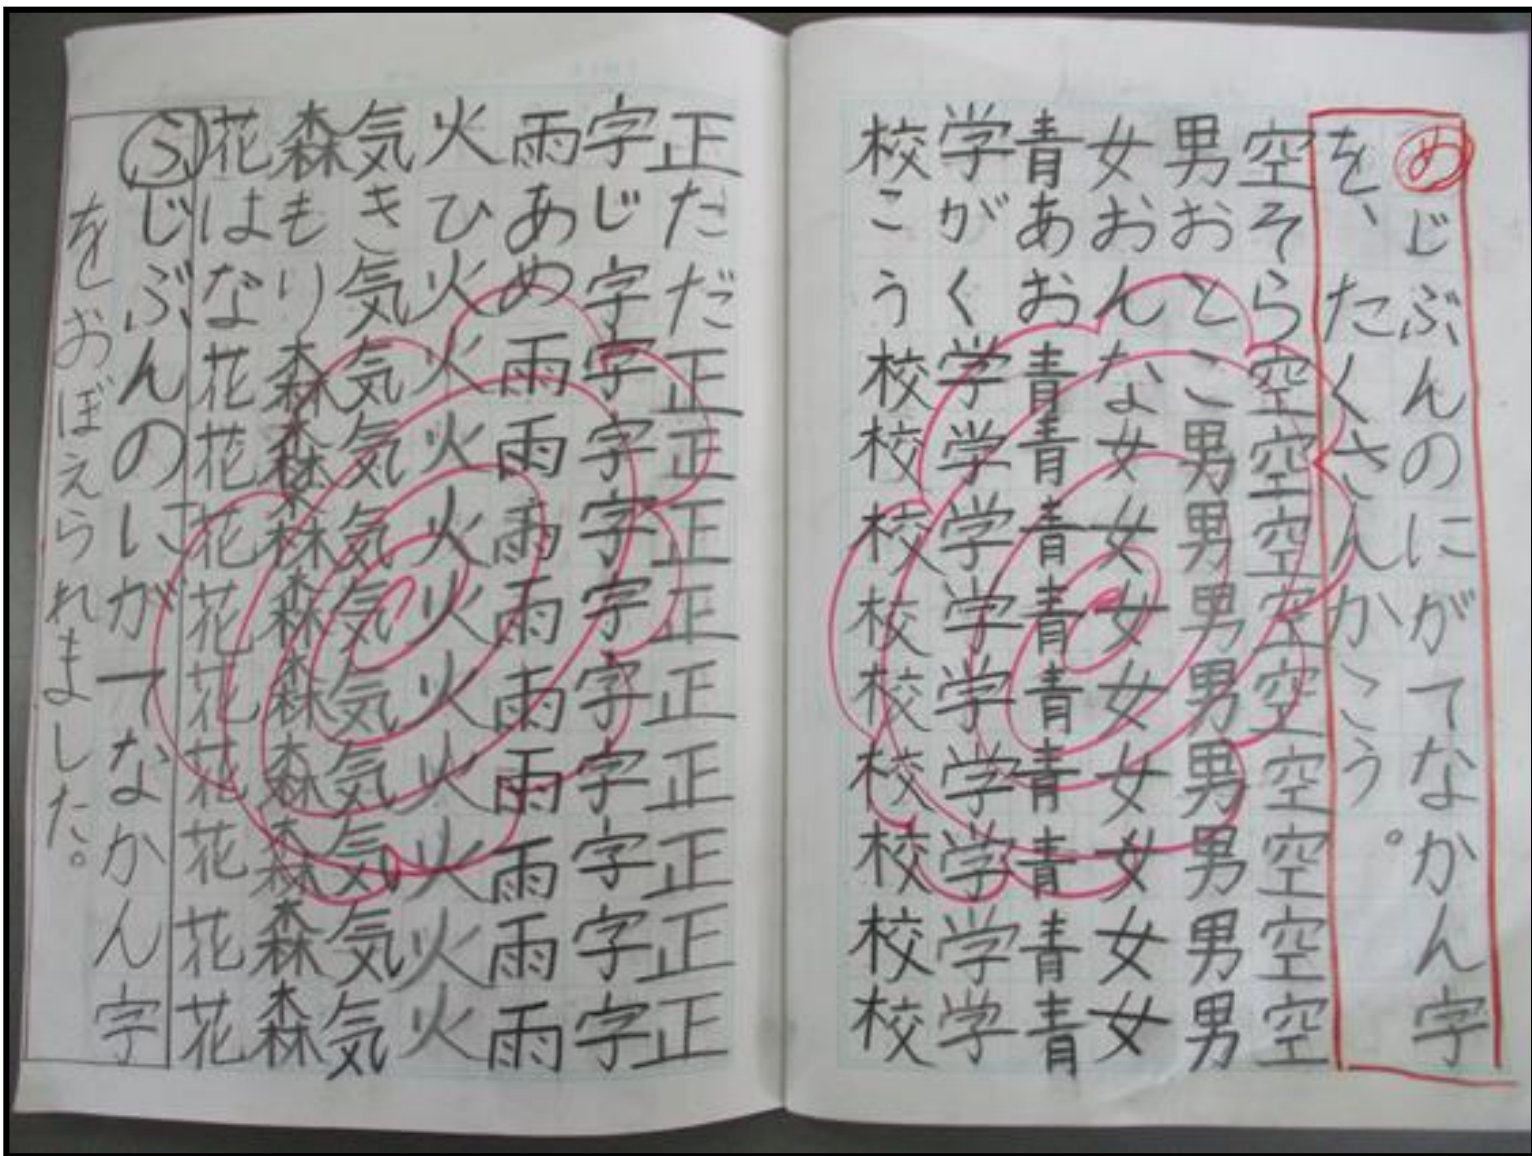 めじぶんのにがてなかん字
を、たくさんかこう。
空そら空空空空空空空空空
男おとこ男男男男男男男男
女おんな女女女女女女女女
青あお青青青青青青青青青
学がく学学学学学学学学学
校こう校校校校校校校校校
正ただ正正正正正正正正正
字じ字字字字字字字字字字
雨あめ雨雨雨雨雨雨雨雨雨
火ひ火火火火火火火火火火
気き気気気気気気気気気気
森もり森森森森森森森森森
花はな花花花花花花花花花
ふじぶんのにがてなかん字
をおぼえられました。